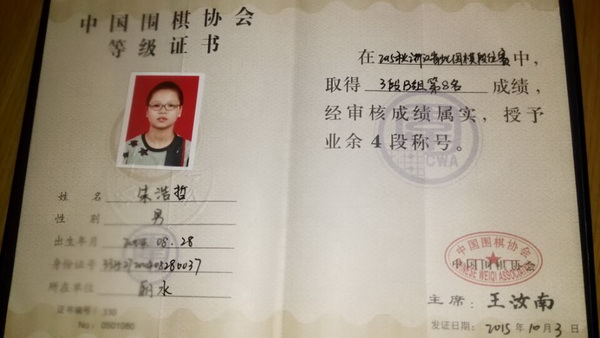 中国围棋协会
等级证书
姓 名 朱浩哲
性 别 男
出生年月 08.28
身份证号
所在单位 丽水
证书编号: 330
No: 0501060
在 2015 中,
取得 3段B组第8名 成绩,
经审核成绩属实，授予
业余4段称号。
CWA
中国围棋协会
CHINESE WEIQI ASSOCIATION
中国围棋协会
主席: 王汝南
发证日期: 2015 年 10 月 3 日